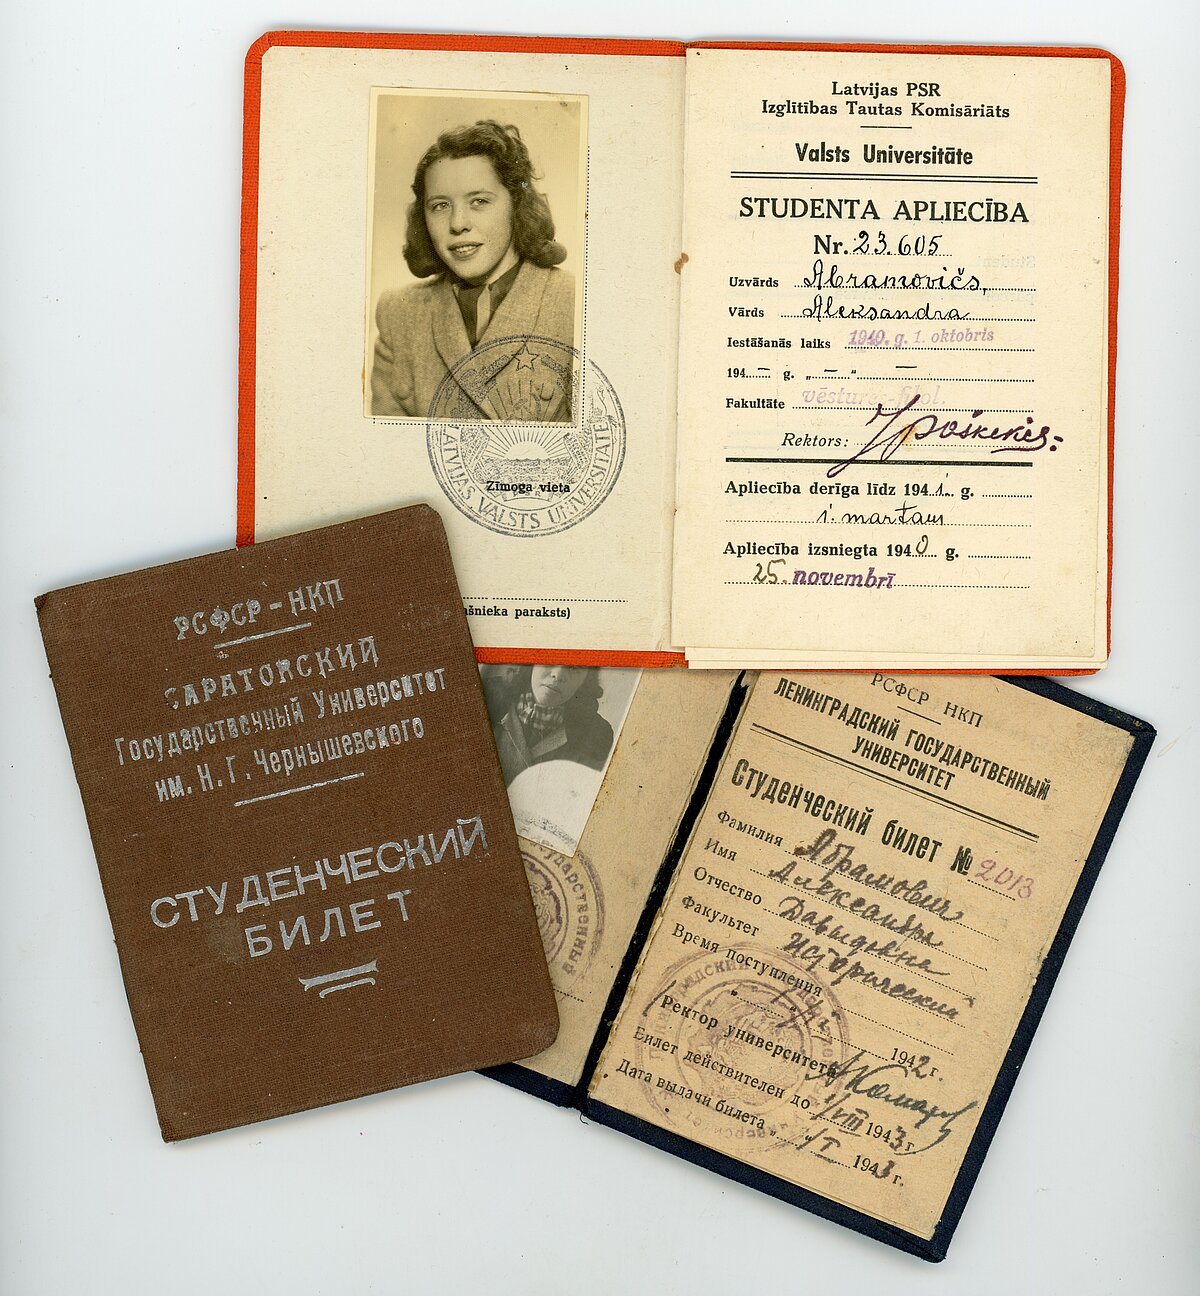 Latvijas PSR
Izglītības Tautas Komisāriāts
Valsts Universitāte
STUDENTA APLIECĪBA
Nr. 23.605
Uzvārds Abramovičs,
Vārds Aleksandra
Iestāšanās laiks 1940. g. 1. oktobris
194 — g. „ — “ —
Fakultāte vēstur.-filol.
Rektors:
Apliecība derīga līdz 1941. g.
1. martam
Apliecība izsniegta 1940 g.
25. novembrī
LATVIJAS VALSTS UNIVERSITĀTE
Zīmoga vieta
šnieka paraksts)
РСФСР-НКП
САРАТОВСКИЙ
Государственный Университет
им. Н. Г. Чернышевского
СТУДЕНЧЕСКИЙ
БИЛЕТ
РСФСР НКП
ЛЕНИНГРАДСКИЙ ГОСУДАРСТВЕННЫЙ
УНИВЕРСИТЕТ
Студенческий билет № 2013
Фамилия Абрамович
Имя Александра
Отчество Давыдовна
Факультет Исторический
Время поступления
1942 г.
Ректор университета
Билет действителен до 1/VIII 1943 г.
Дата выдачи билета „ 1/I 1943 г.